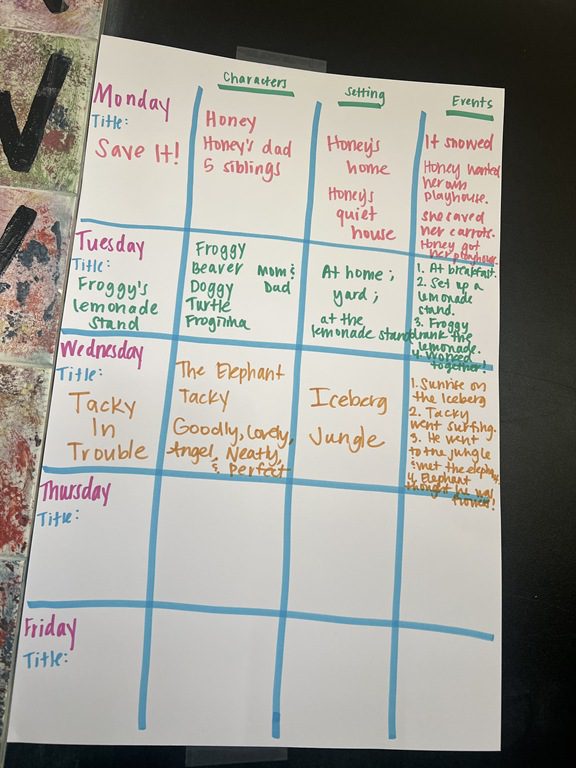 Characters
Setting
Events
Monday
Title:
Save It!
Honey
Honey's dad
5 siblings
Honey's
home
Honey's
quiet
house
It snowed
Honey wanted
her own
playhouse.
she saved
her carrots.
Honey got
her playhouse.
Tuesday
Title:
Froggy's
lemonade
Stand
Froggy
Beaver
Doggy
Turtle
Frogilina
Mom &
Dad
At home;
yard;
at the
lemonade stand
1. At breakfast.
2. Set up a
lemonade
stand.
3. Froggy
drank the
lemonade.
4. Worked
together!
Wednesday
Title:
Tacky
In
Trouble
The Elephant
Tacky
Goodly, Lovely,
Angel, Neatly,
& Perfect
Iceberg
Jungle
1. Sunrise on
the Iceberg
2. Tacky
went surfing.
3. He went
to the jungle
& met the elephant.
4. Elephant
thought he was
flower!
Thursday
Title:
Friday
Title: